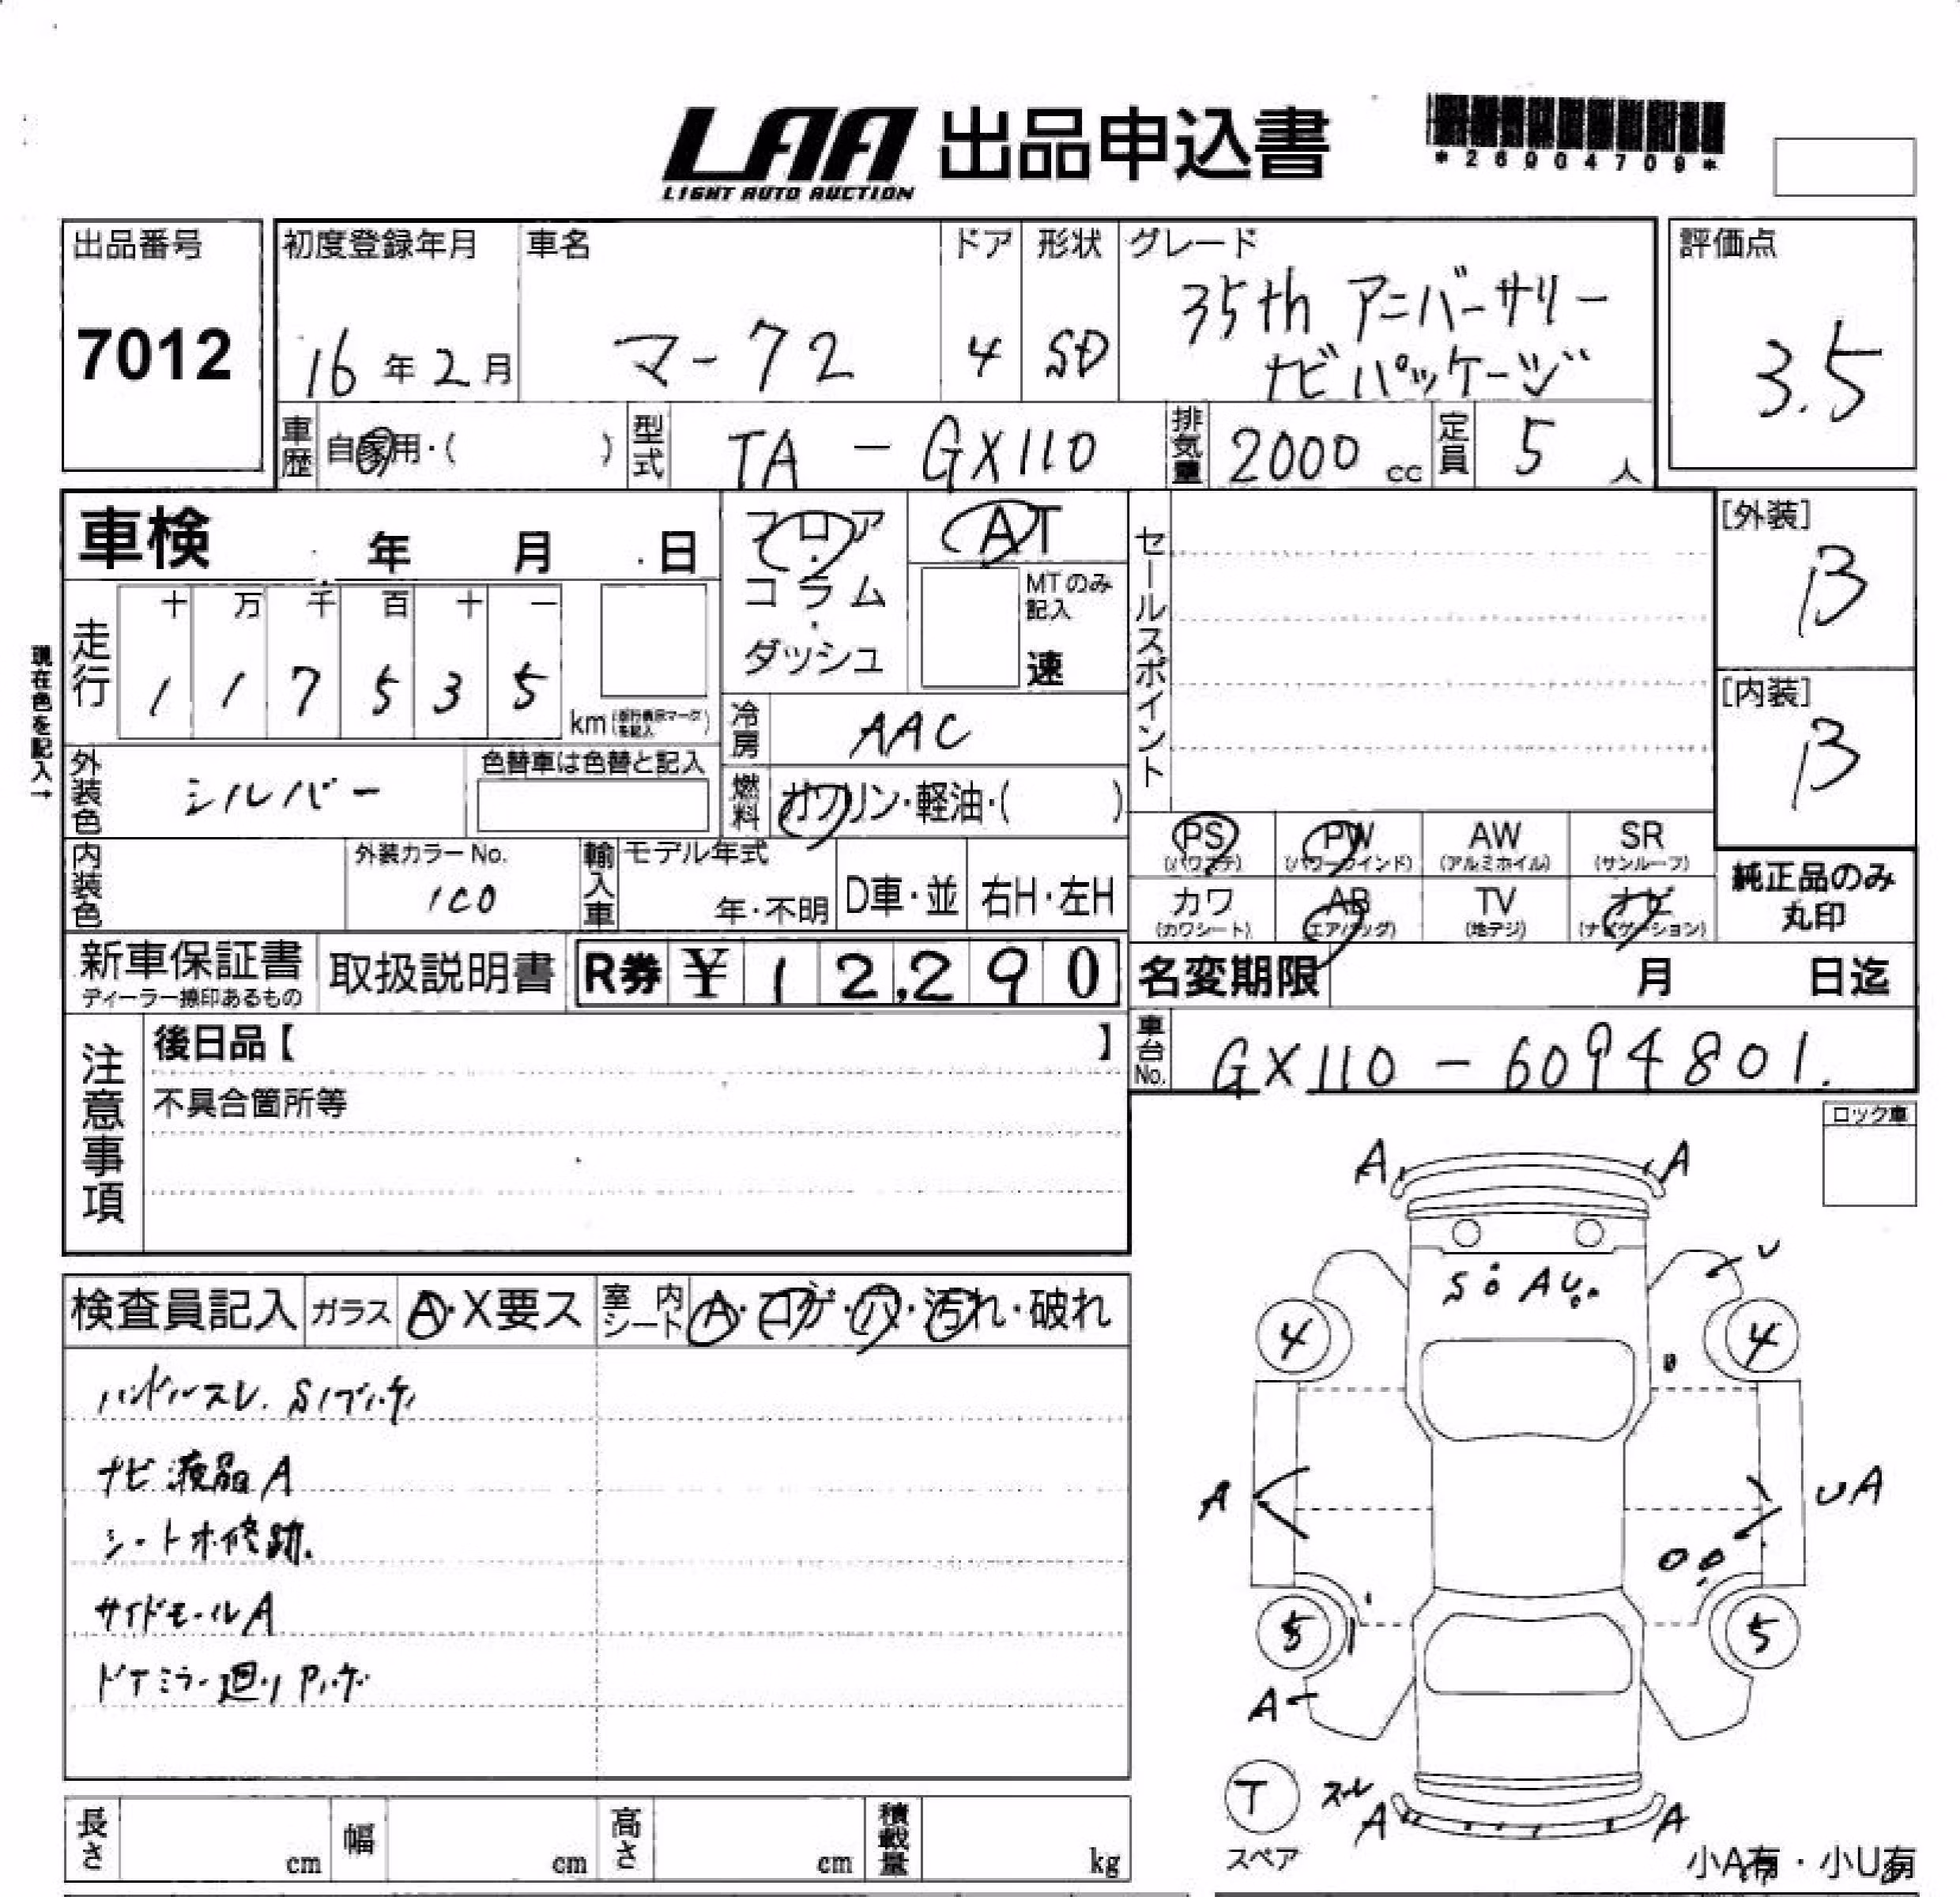 LAA 出品申込書
LIGHT AUTO AUCTION
*26904709*
出品番号
7012
初度登録年月
16年2月
車名
マー72
ドア
4
形状
SD
グレード
35th アニバーサリー
ナビパッケージ
評価点
3.5
車歴 自家用・( )
型式 TA - GX110
排気量 2000 cc
定員 5 人
車検 年 月 日
フロア・コラム・ダッシュ
AT
MTのみ記入
速
セールスポイント
[外装]
B
[内装]
B
現在色を記入→
走行
十 万 千 百 十 一
1 1 7 5 3 5
km
冷房 AAC
外装色 シルバー
色替車は色替と記入
燃料 ガソリン・軽油・( )
内装色
外装カラーNo.
1C0
輸入車 モデル年式
年・不明
D車・並
右H・左H
PS (パワステ)
PW (パワーウインド)
AW (アルミホイル)
SR (サンルーフ)
カワ (カワシート)
AB (エアバッグ)
TV (地デジ)
ナビ (ナビゲーション)
純正品のみ
丸印
新車保証書
ディーラー捺印あるもの
取扱説明書
R券 ¥ 12,290
名変期限 月 日迄
車台No. GX110 - 6094801.
注意事項
後日品【 】
不具合箇所等
ロック車
検査員記入
ガラス A・X要ス
室内シート A・コゲ・穴・汚れ・破れ
ハンドルスレ.
ナビ液晶A
シートホ修跡.
サイドモールA
ドアミラー廻り
A
A
U
4
4
A
UA
5
5
A
T
スペア
スレ
A
A
小A有・小U有
長さ cm
幅 cm
高さ cm
積載量 kg